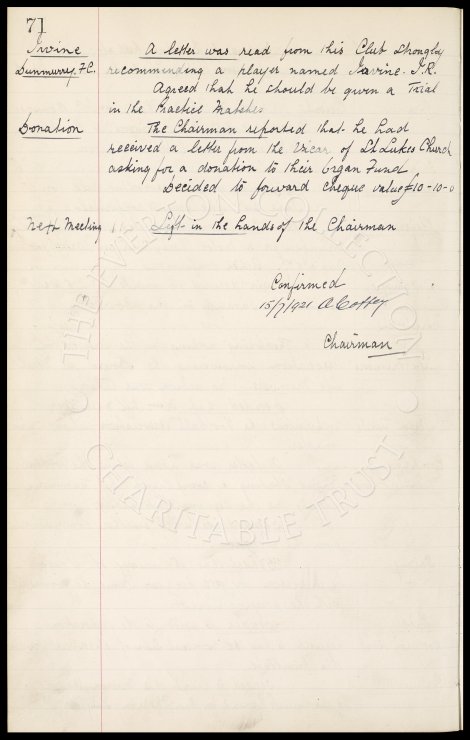 71
Irvine A letter was read from this Club strongly
Dunmurry F.C. recommending a player named Irvine. I.R.
Agreed that he should be given a Trial
in the Practice Matches
Donation The Chairman reported that he had
received a letter from the Vicar of St Lukes Church
asking for a donation to their Organ Fund
Decided to forward cheque value £10-10-0
Next Meeting Left in the hands of the Chairman
Confirmed
15/7/1921 A Coffey
Chairman
THE EVERTON COLLECTION
CHARITABLE TRUST